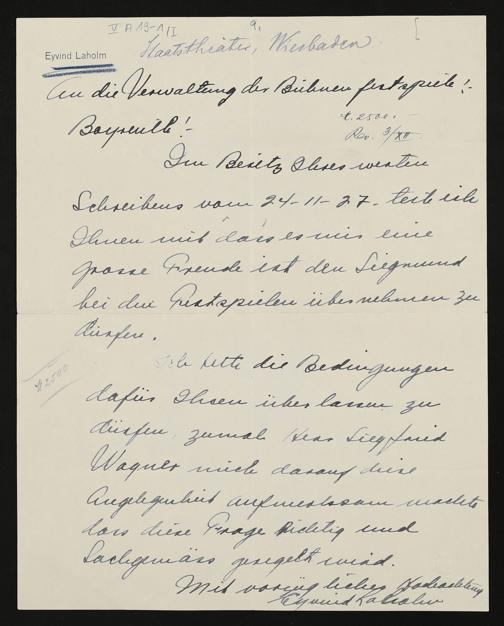 V A 19-1/I
a.
Eyvind Laholm
Staatstheater, Wiesbaden.
An die Verwaltung der Bühnenfestspiele!-
Bayreuth!-
2500.-
Rev. 3/XII
Im Besitz Ihres werten
Schreibens vom 24-11-27- teile ich
Ihnen mit dass es mir eine
grosse Freude ist den Siegmund
bei den Festspielen übernehmen zu
dürfen.
Ich bitte die Bedingungen
2500
dafür Ihnen überlassen zu
dürfen, zumal Herr Siegfried
Wagner mich darauf diese
Angelegenheit aufmerksam machte
dass diese Frage Richtig und
Sachgemäss geregelt wird.
Mit vorzüglicher Hochachtung
Eyvind Laholm